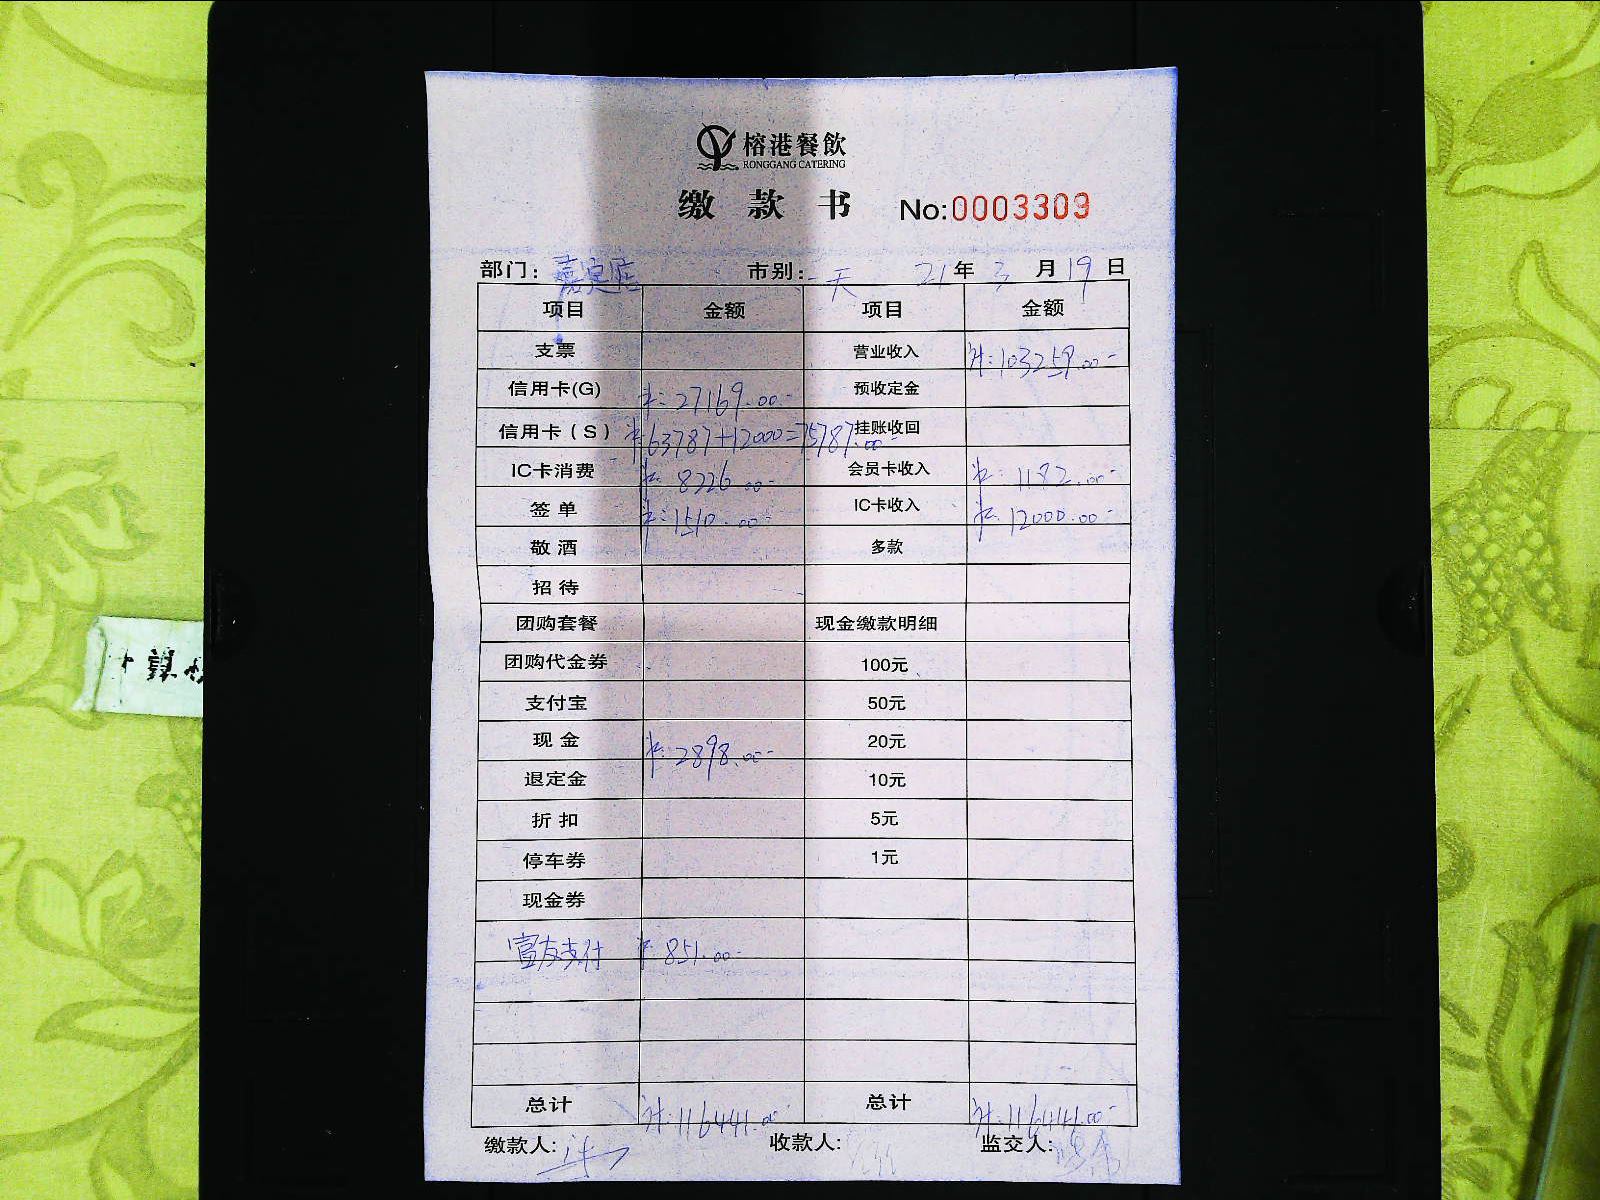 榕港餐飲
RONGGANG CATERING
缴款书 No:0003309
部门：嘉定店 市别：一天 21年3月19日
项目 金额 项目 金额
支票 营业收入 计:103259.00-
信用卡(G) 卡:27169.00- 预收定金
信用卡（S） 卡63787+12000=75787.00 挂账收回
IC卡消费 卡:8226.00- 会员卡收入 卡:1182.00-
签单 卡:1510.00- IC卡收入 卡:12000.00-
敬酒 多款
招待
团购套餐 现金缴款明细
团购代金券 100元
支付宝 50元
现金 卡:2898.00- 20元
退定金 10元
折扣 5元
停车券 1元
现金券
富友支付 卡851.00-
总计 计:116441.00- 总计 计:116441.00-
缴款人: 收款人: 监交人:
算